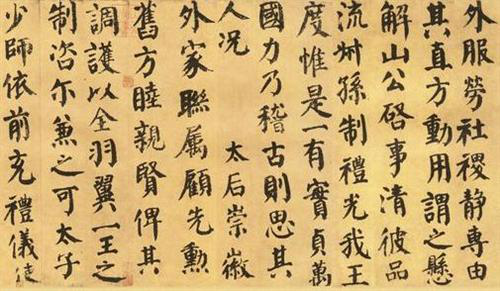 外服勞社稷靜專由
其直方動用謂之懸
解山公啓事清彼品
流叔孫制禮光我王
度惟是一有實貞萬
國力乃稽古則思其
人况 太后崇徽
外家聯属顧先勲
舊方睦親賢俾其
調護以全羽翼一王之
制咨尔兼之可太子
少師依前充禮儀使